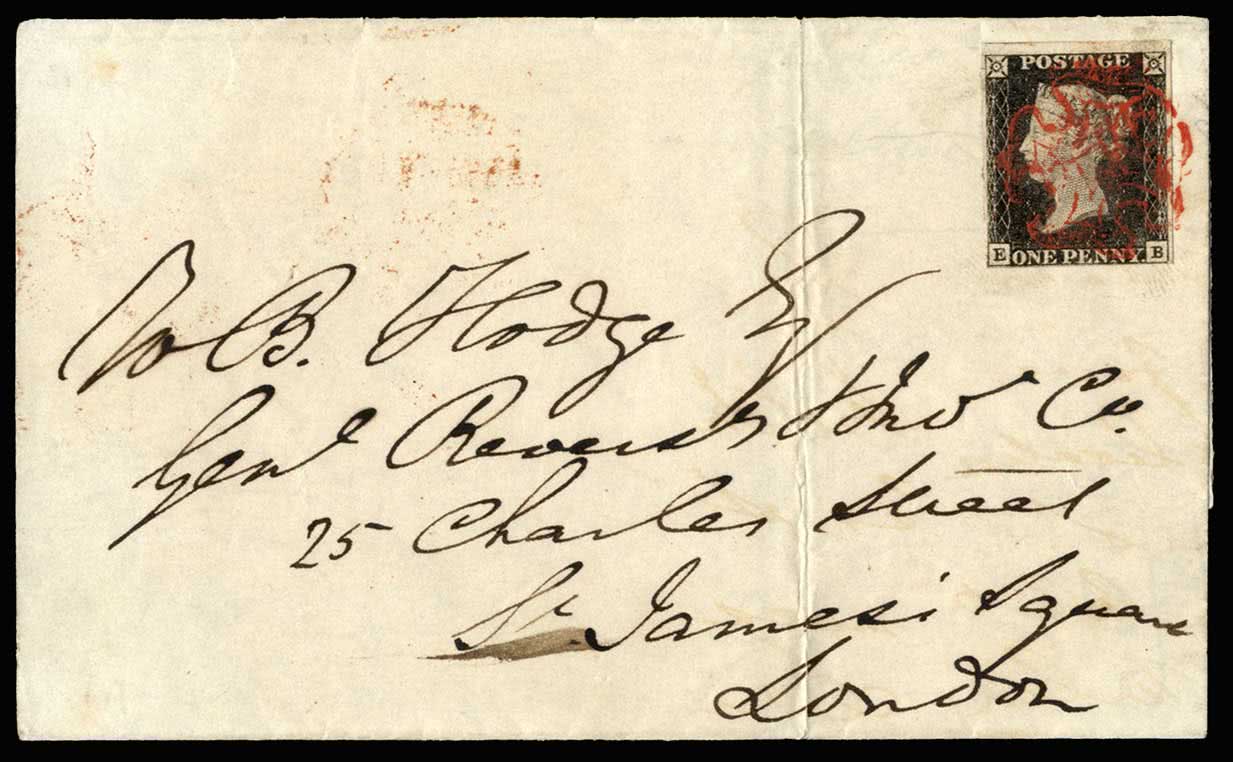 POSTAGE
E ONE PENNY B
W B. Hodge Esq
Genl Revers.y & Invt Co.
25 Charles Street
St. James's Square
London